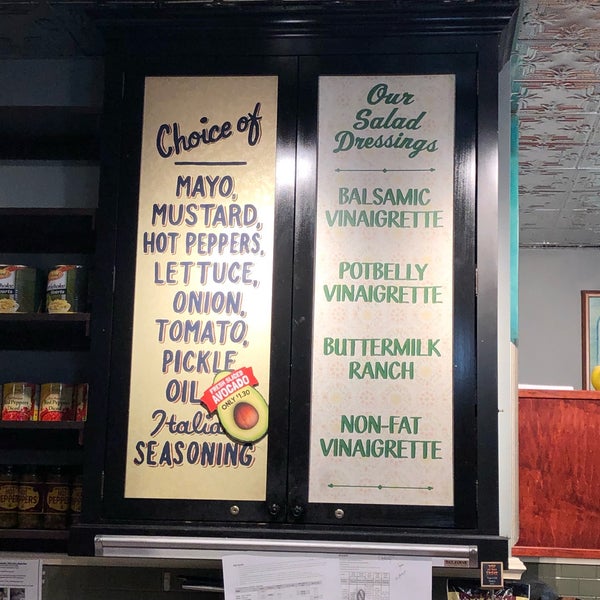 Choice of
MAYO,
MUSTARD,
HOT PEPPERS,
LETTUCE,
ONION,
TOMATO,
PICKLE
OIL
FRESH SLICED
AVOCADO
ONLY $1.30
SEASONING
Our
Salad
Dressings
BALSAMIC
VINAIGRETTE
POTBELLY
VINAIGRETTE
BUTTERMILK
RANCH
NON-FAT
VINAIGRETTE
PEPPERS